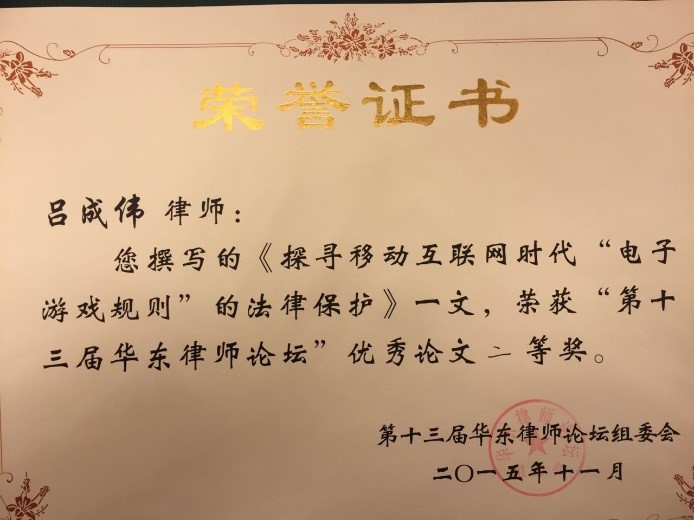 荣誉证书
吕成伟 律师：
您撰写的《探寻移动互联网时代“电子
游戏规则”的法律保护》一文，荣获“第十
三届华东律师论坛”优秀论文二等奖。
第十三届华东律师论坛组委会
二〇一五年十一月